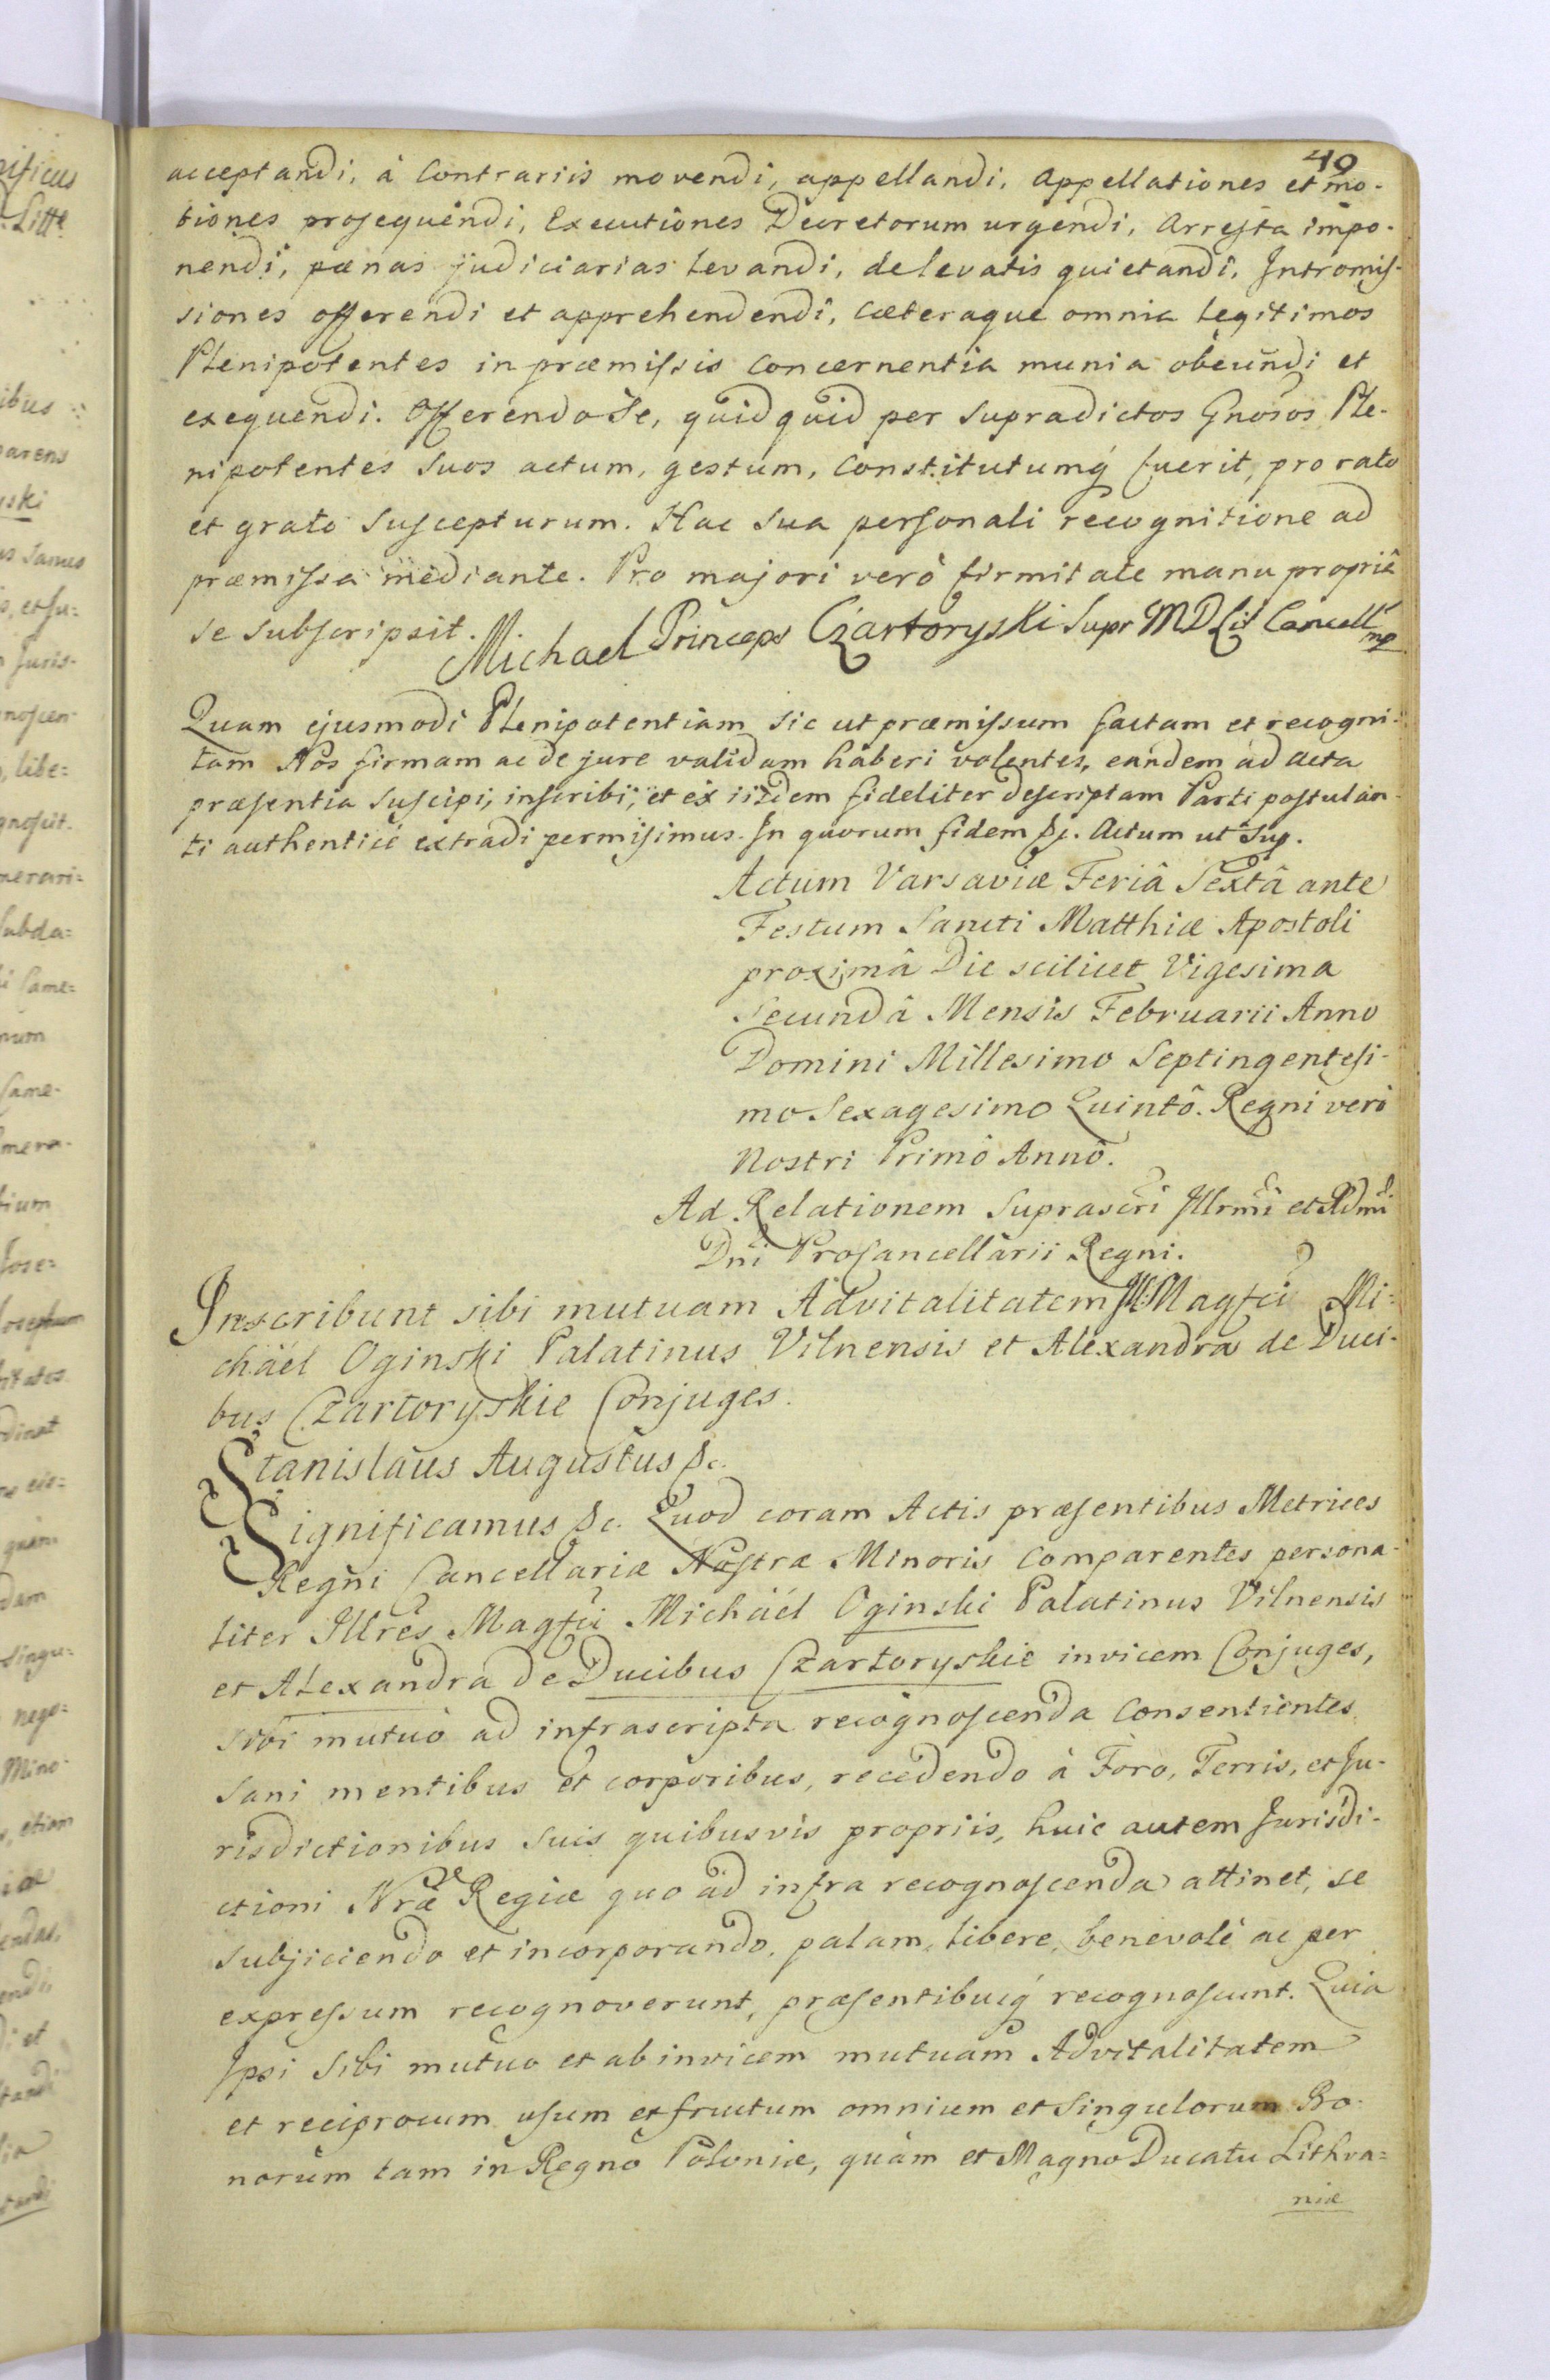 40
acceptandi, à Contrariis movendi, appellandi, Appellationes et mo-
tiones prosequendi, Executiones Decretorum urgendi, Arresta impo-
nendi, pœnas judiciarias levandi, de levatis quietandi, Intromis-
siones offerendi et apprehendendi, cæteraque omnia legitimos
Plenipotentes in præmissis concernentia munia obeundi et
exequendi. Offerendo Se, quidquid per supradictos Gnosos Ple-
nipotentes suos actum, gestum, constitutumq́ fuerit, pro rato
et grato suscepturum. Hac sua personali recognitione ad
præmissa mediante. Pro majori verò firmitate manu propriâ
se subscripsit. Michael Princeps Czartoryski Supr MD Lit Cancell mp
Quam ejusmodi Plenipotentiam sic ut præmissum factam et recogni-
tam Nos firmam ac de jure validam haberi volentes, eandem ad Acta
præsentia suscipi, inscribi, et ex iisdem fideliter descriptam Parti postulan-
ti authenticè extradi permisimus. In quorum fidem &c. Actum ut sup.
Actum Varsaviæ Feriâ Sextâ ante
Festum Sancti Matthiæ Apostoli
proximâ Die scilicet Vigesima
Secundâ Mensis Februarii Anno
Domini Millesimo Septingentesi-
mo Sexagesimo Quintô. Regni verò
Nostri Primô Annô.
Ad Relationem suprascri Illrmi et Rdmi
Dni ProCancellarii Regni.
Inscribunt sibi mutuam Advitalitatem Magfci Mi-
chäel Oginski Palatinus Vilnensis et Alexandra de Duci-
bus Czartoryskie Conjuges.
Stanislaus Augustus &c.
Significamus &c. Quod coram Actis præsentibus Metrices
Regni Cancellariæ Nostræ Minoris comparentes persona-
liter Illres Magfci Michäel Oginski Palatinus Vilnensis
et Alexandra de Ducibus Czartoryskie invicem Conjuges,
sibi mutuò ad infrascripta recognoscenda Consentientes
sani mentibus et corporibus, recedendo à Foro, Terris, et Ju-
risdictionibus suis quibusvis propriis, huic autem Jurisdi-
ctioni Nræ Regiæ quo ad infra recognoscenda attinet, se
subjiciendo et incorporando, palam, libere, benevolè ac per
expressum recognoverunt, præsentibusq́ recognoscunt. Quia
Ipsi Sibi mutuo et ab invicem mutuam Advitalitatem
et reciprocum usum et fructum omnium et singulorum Bo-
norum tam in Regno Poloniæ, quàm et Magno Ducatu Lithva-
niæ